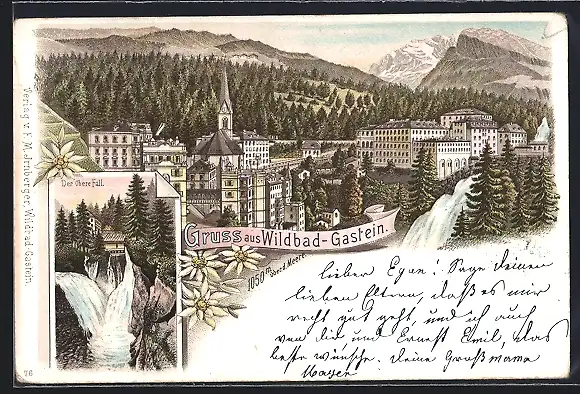 Verlag v. F. M. Irnberger, Wildbad-Gastein.
Der Obere Fall.
Gruss aus Wildbad-Gastein.
1050 m über d. Meere.
lieber Egon! Sage deinen
lieben Eltern, daß es mir
recht gut geht, und ich auch
von dir und Ernest Emil, das
beste wünsche. deine Großmama
Mayer
76